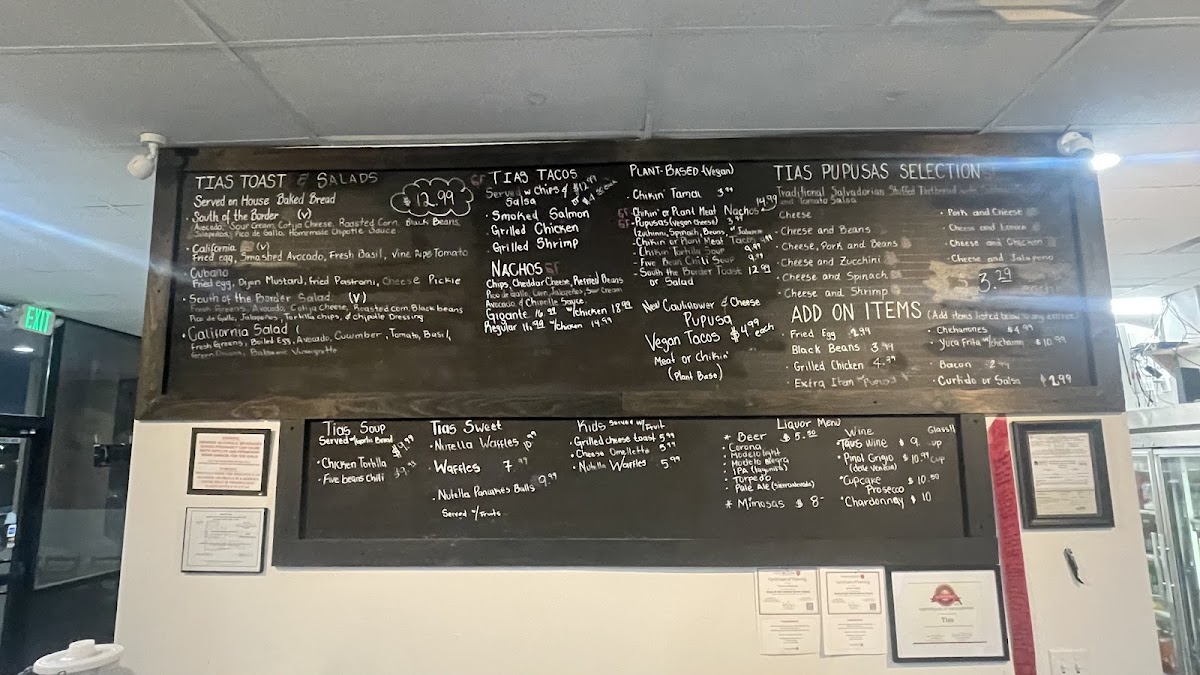 TIAS TOAST & SALADS
Served on House Baked Bread
$12.99
South of the Border (V)
Avocado, Sour Cream, Cotija Cheese, Roasted Corn, Black Beans,
Jalapeños, Pico de Gallo, Homemade Chipotle Sauce
California (V)
Fried egg, Smashed Avocado, Fresh Basil, Vine Ripe Tomato
Cubano
Fried egg, Dijon Mustard, Fried Pastrami, Cheese Pickle
South of the Border Salad (V)
Fresh Greens, Avocado, Cotija Cheese, Roasted corn, Black beans
Pico de Gallo, Jalapeños, Tortilla chips, & Chipotle Dressing
California Salad (
Fresh Greens, Boiled Egg, Avocado, Cucumber, Tomato, Basil,
Green Onions, Balsamic Vinaigrette
GF TIAS TACOS
Served w Chips &
Salsa
$12.99
Smoked Salmon
Grilled Chicken
Grilled Shrimp
NACHOS GF
Chips, Cheddar Cheese, Refried Beans
Pico de Gallo, Corn, Jalapeños, Sour Cream
Avocado & Chipotle Sauce
Gigante 16.99 w/chicken 18.99
Regular 11.99 w/chicken 14.99
PLANT-BASED (Vegan)
Chikin' Tamal 3.99
GF Chikin' or Plant Meat Nachos 14.99
GF Pupusas (Vegan Cheese) 3.99
(Zuchinni, Spinach, Beans, Jalapeno
Chikin or Plant Meat Tacos 4.99
Chikin Tortilla Soup 9.99
Five Bean Chili Soup 9.99
South the Border Toast 12.99
or Salad
New Cauliflower & Cheese
Pupusa
Vegan Tacos $4.99 each
Meat or Chikin'
(Plant Base)
TIAS PUPUSAS SELECTION
Traditional Salvadorian Stuffed Flatbread with
and Tomato Salsa
Cheese
Cheese and Beans
Cheese, Pork and Beans
Cheese and Zucchini
Cheese and Spinach
Cheese and Shrimp
Pork and Cheese
Cheese and Loroco
Cheese and Chicken
Cheese and Jalapeño
$3.29
ADD ON ITEMS (Add items listed below to any entree)
Fried Egg 2.99
Black Beans 3.99
Grilled Chicken 4.99
Extra Item Pupusa
Chicharrones $4.99
Yuca Frita w/chicharron $10.99
Bacon 2.99
Curtido or Salsa $1.99
Tias Soup
Served w/ Bread
Chicken Tortilla
Five beans Chili
Tias Sweet
Nutella Waffles 10.99
Waffles 7.99
Nutella Pancakes Balls 9.99
Served w/Fruits
Kids Served w/ Fruit
Grilled cheese toast 5.99
Cheese Omellette 5.99
Nutella Waffles 5.99
Liquor Menu
* Beer $5.00
Corona
Modelo light
Modelo Negra
IPA (lagunitas)
Torpedo
Pale Ale (sierra nevada)
* Mimosas $8
Wine Glass
Tias Wine $9. cup
*Pinot Grigio $10.99 cup
(delle Venezie)
*Cupcake $10.50
Prosecco
*Chardonnay $10
EXIT
Tias